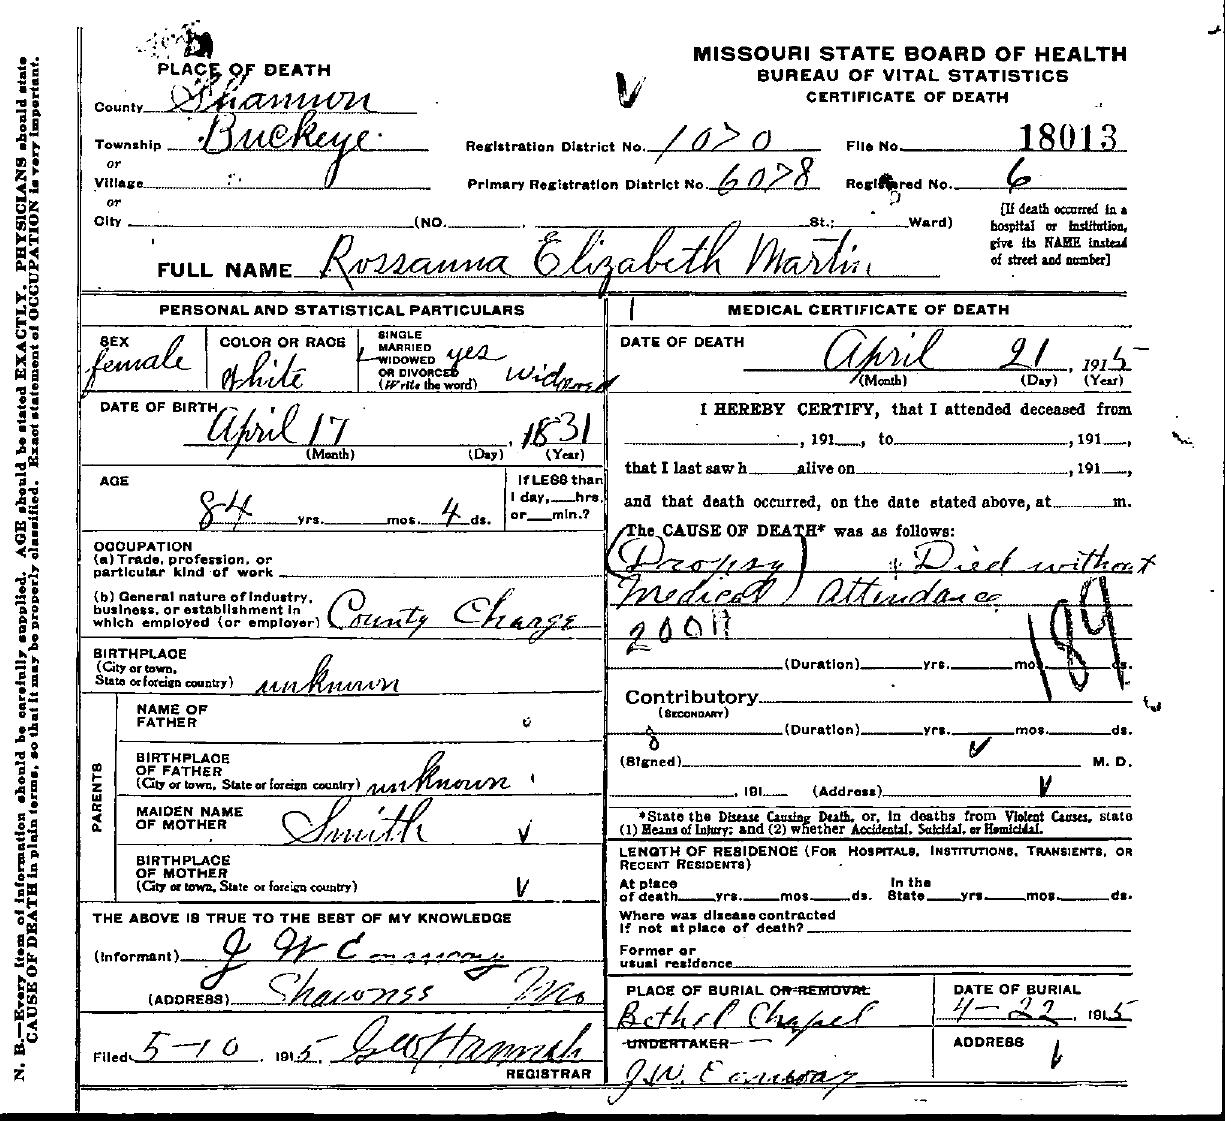 MISSOURI STATE BOARD OF HEALTH
BUREAU OF VITAL STATISTICS
CERTIFICATE OF DEATH
PLACE OF DEATH
County Shannon
Township Buckeye
or
Village
or
City (NO. St.; Ward)
Registration District No. 1070 File No. 18013
Primary Registration District No. 6078 Registered No. 6
[If death occurred in a
hospital or institution,
give its NAME instead
of street and number]
FULL NAME Rossanna Elizabeth Martin
PERSONAL AND STATISTICAL PARTICULARS
SEX
female
COLOR OR RACE
White
SINGLE
MARRIED
WIDOWED
OR DIVORCED
(Write the word)
yes
widowed
DATE OF BIRTH
April 17, 1831
(Month) (Day) (Year)
AGE
84 yrs. mos. 4 ds.
If LESS than
1 day, hrs.
or min.?
OCCUPATION
(a) Trade, profession, or
particular kind of work
(b) General nature of industry,
business, or establishment in
which employed (or employer) County Charge
BIRTHPLACE
(City or town,
State or foreign country) unknown
PARENTS
NAME OF
FATHER
BIRTHPLACE
OF FATHER
(City or town, State or foreign country) unknown
MAIDEN NAME
OF MOTHER Smith
BIRTHPLACE
OF MOTHER
(City or town, State or foreign country)
THE ABOVE IS TRUE TO THE BEST OF MY KNOWLEDGE
(Informant) J W Conway
(ADDRESS) Mo
Filed 5-10, 1915 Geo Hannah
REGISTRAR
MEDICAL CERTIFICATE OF DEATH
DATE OF DEATH
April 21, 1915
(Month) (Day) (Year)
I HEREBY CERTIFY, that I attended deceased from
, 191 , to , 191 ,
that I last saw h alive on , 191 ,
and that death occurred, on the date stated above, at m.
The CAUSE OF DEATH* was as follows:
(Dropsy) Died without
Medical Attendance
200A
189
(Duration) yrs. mos. ds.
Contributory
(SECONDARY)
(Duration) yrs. mos. ds.
(Signed) M. D.
, 191 (Address)
*State the Disease Causing Death, or, in deaths from Violent Causes, state
(1) Means of Injury; and (2) whether Accidental, Suicidal, or Homicidal.
LENGTH OF RESIDENCE (FOR HOSPITALS, INSTITUTIONS, TRANSIENTS, OR
RECENT RESIDENTS)
At place
of death yrs. mos. ds.
In the
State yrs. mos. ds.
Where was disease contracted
if not at place of death?
Former or
usual residence
PLACE OF BURIAL OR REMOVAL
Bethel Chapel
DATE OF BURIAL
4-22, 1915
UNDERTAKER
J.W. Conway
ADDRESS
N. B.—Every item of information should be carefully supplied. AGE should be stated EXACTLY. PHYSICIANS should state
CAUSE OF DEATH in plain terms, so that it may be properly classified. Exact statement of OCCUPATION is very important.